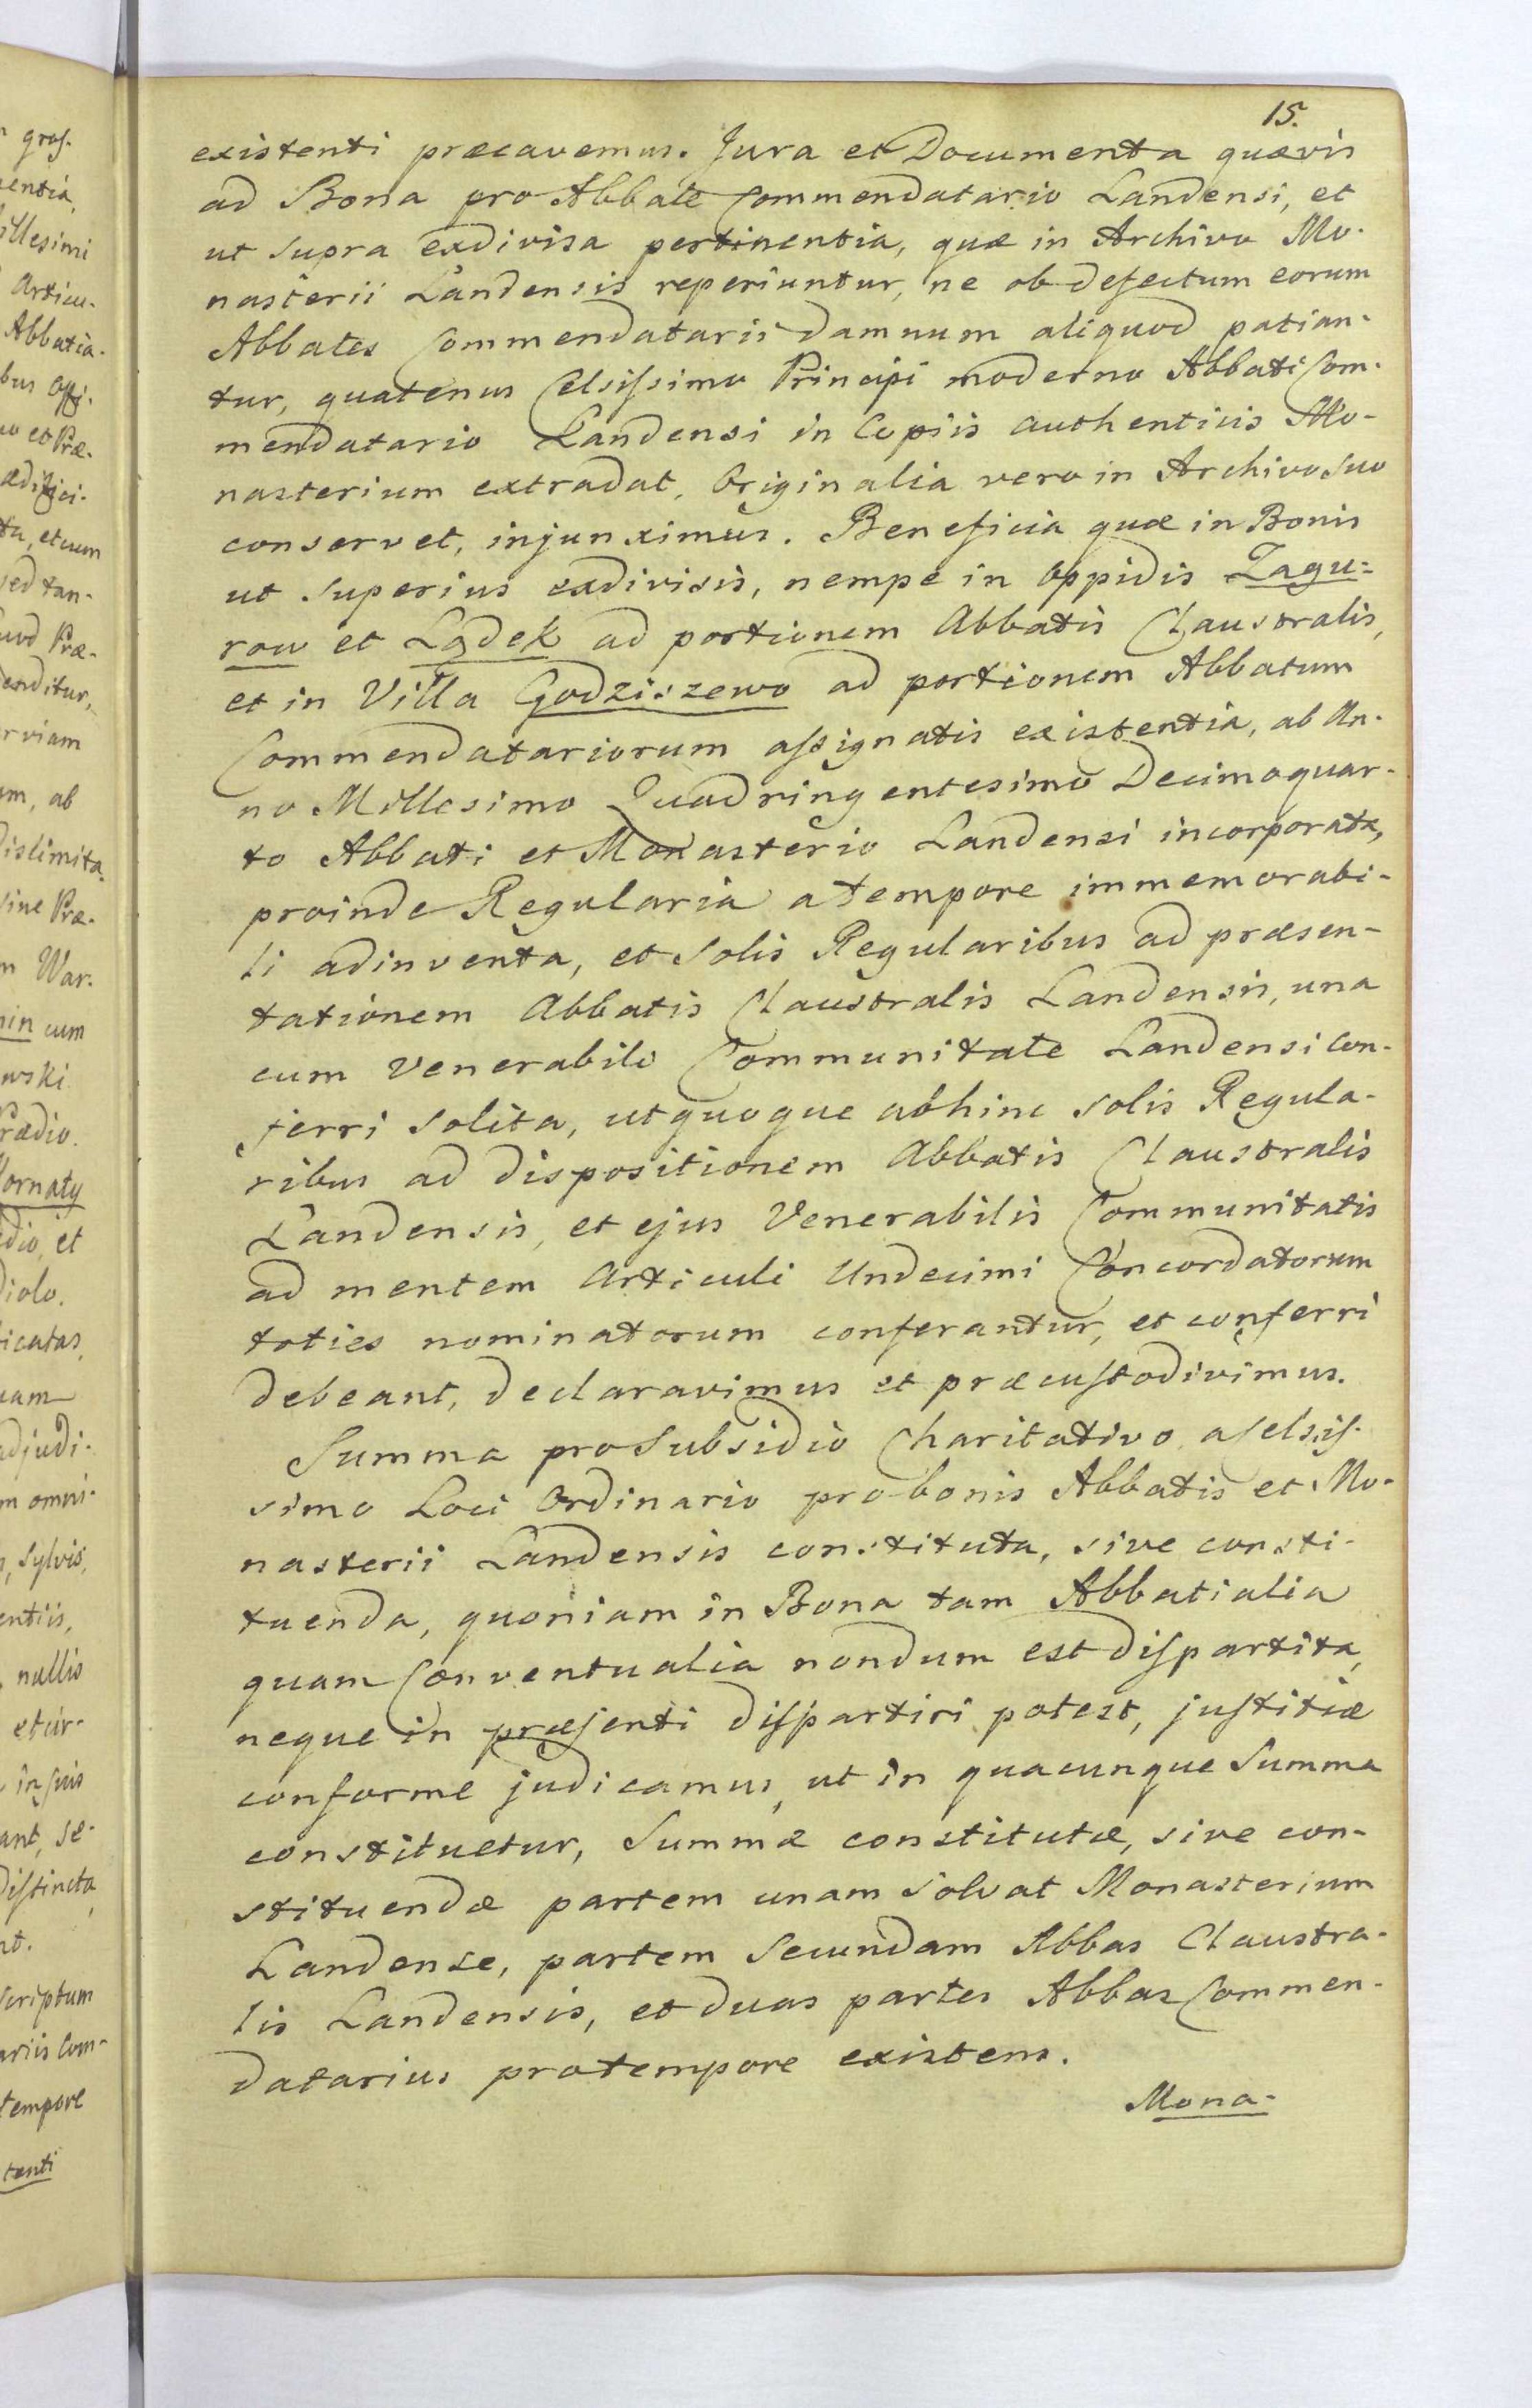 15.
existenti præcavemus. Jura et Documenta quævis
ad Bona pro Abbate Commendatario Landensi, et
ut supra exdivisa pertinentia, quæ in Archivo Mo-
nasterii Landensis reperiuntur, ne ob defectum eorum
Abbates Commendatarii damnum aliquod patian-
tur, quatenus Celsissimo Principi moderno Abbati Com-
mendatario Landensi in Copiis authenticis Mo-
nasterium extradat, Originalia vero in Archivo suo
conservet, injunximus. Beneficia quæ in Bonis
ut superius exdivisis, nempe in Oppidis Zagu-
row et Lądek ad portionem Abbatis Claustralis,
et in Villa Godziszewo ad portionem Abbatum
Commendatariorum assignatis existentia, ab An-
no Millesimo Quadringentesimo Decimoquar-
to Abbati et Monasterio Landensi incorporata,
proinde Regularia a tempore immemorabi-
li adinventa, et solis Regularibus ad præsen-
tationem Abbatis Claustralis Landensis, una
cum Venerabili Communitate Landensi con-
ferri solita, ut quoque abhinc solis Regula-
ribus ad dispositionem Abbatis Claustralis
Landensis, et ejus Venerabilis Communitatis
ad mentem Articuli Undecimi Concordatorum
toties nominatorum conferantur, et conferri
debeant, declaravimus et præcustodivimus.
Summa pro Subsidio Charitativo a Celsis-
simo Loci Ordinario pro bonis Abbatis et Mo-
nasterii Landensis constituta, sive consti-
tuenda, quoniam in Bona tam Abbatialia
quam Conventualia nondum est dispartita,
neque in præsenti dispartiri potest, justitiæ
conforme judicamus, ut in quacunque Summa
constituetur, Summæ constitutæ, sive con-
stituendæ partem unam solvat Monasterium
Landense, partem secundam Abbas Claustra-
lis Landensis, et duas partes Abbas Commen-
datarius pro tempore existens.
Mona-
gros.
entia,
illesimi
Articu-
Abbatia-
bus Offi-
et Præ-
ædifici-
et cum
sed tan-
Præ-
enditur,
viam
ab
islimita-
sine Præ-
War-
cum
wski
rædio.
ornaty
et
iolo.
icatas,
adjudi-
omni-
sylvis,
entiis,
nullis
in suis
se-
distincta
scriptum
ariis Com-
tempore
tenti